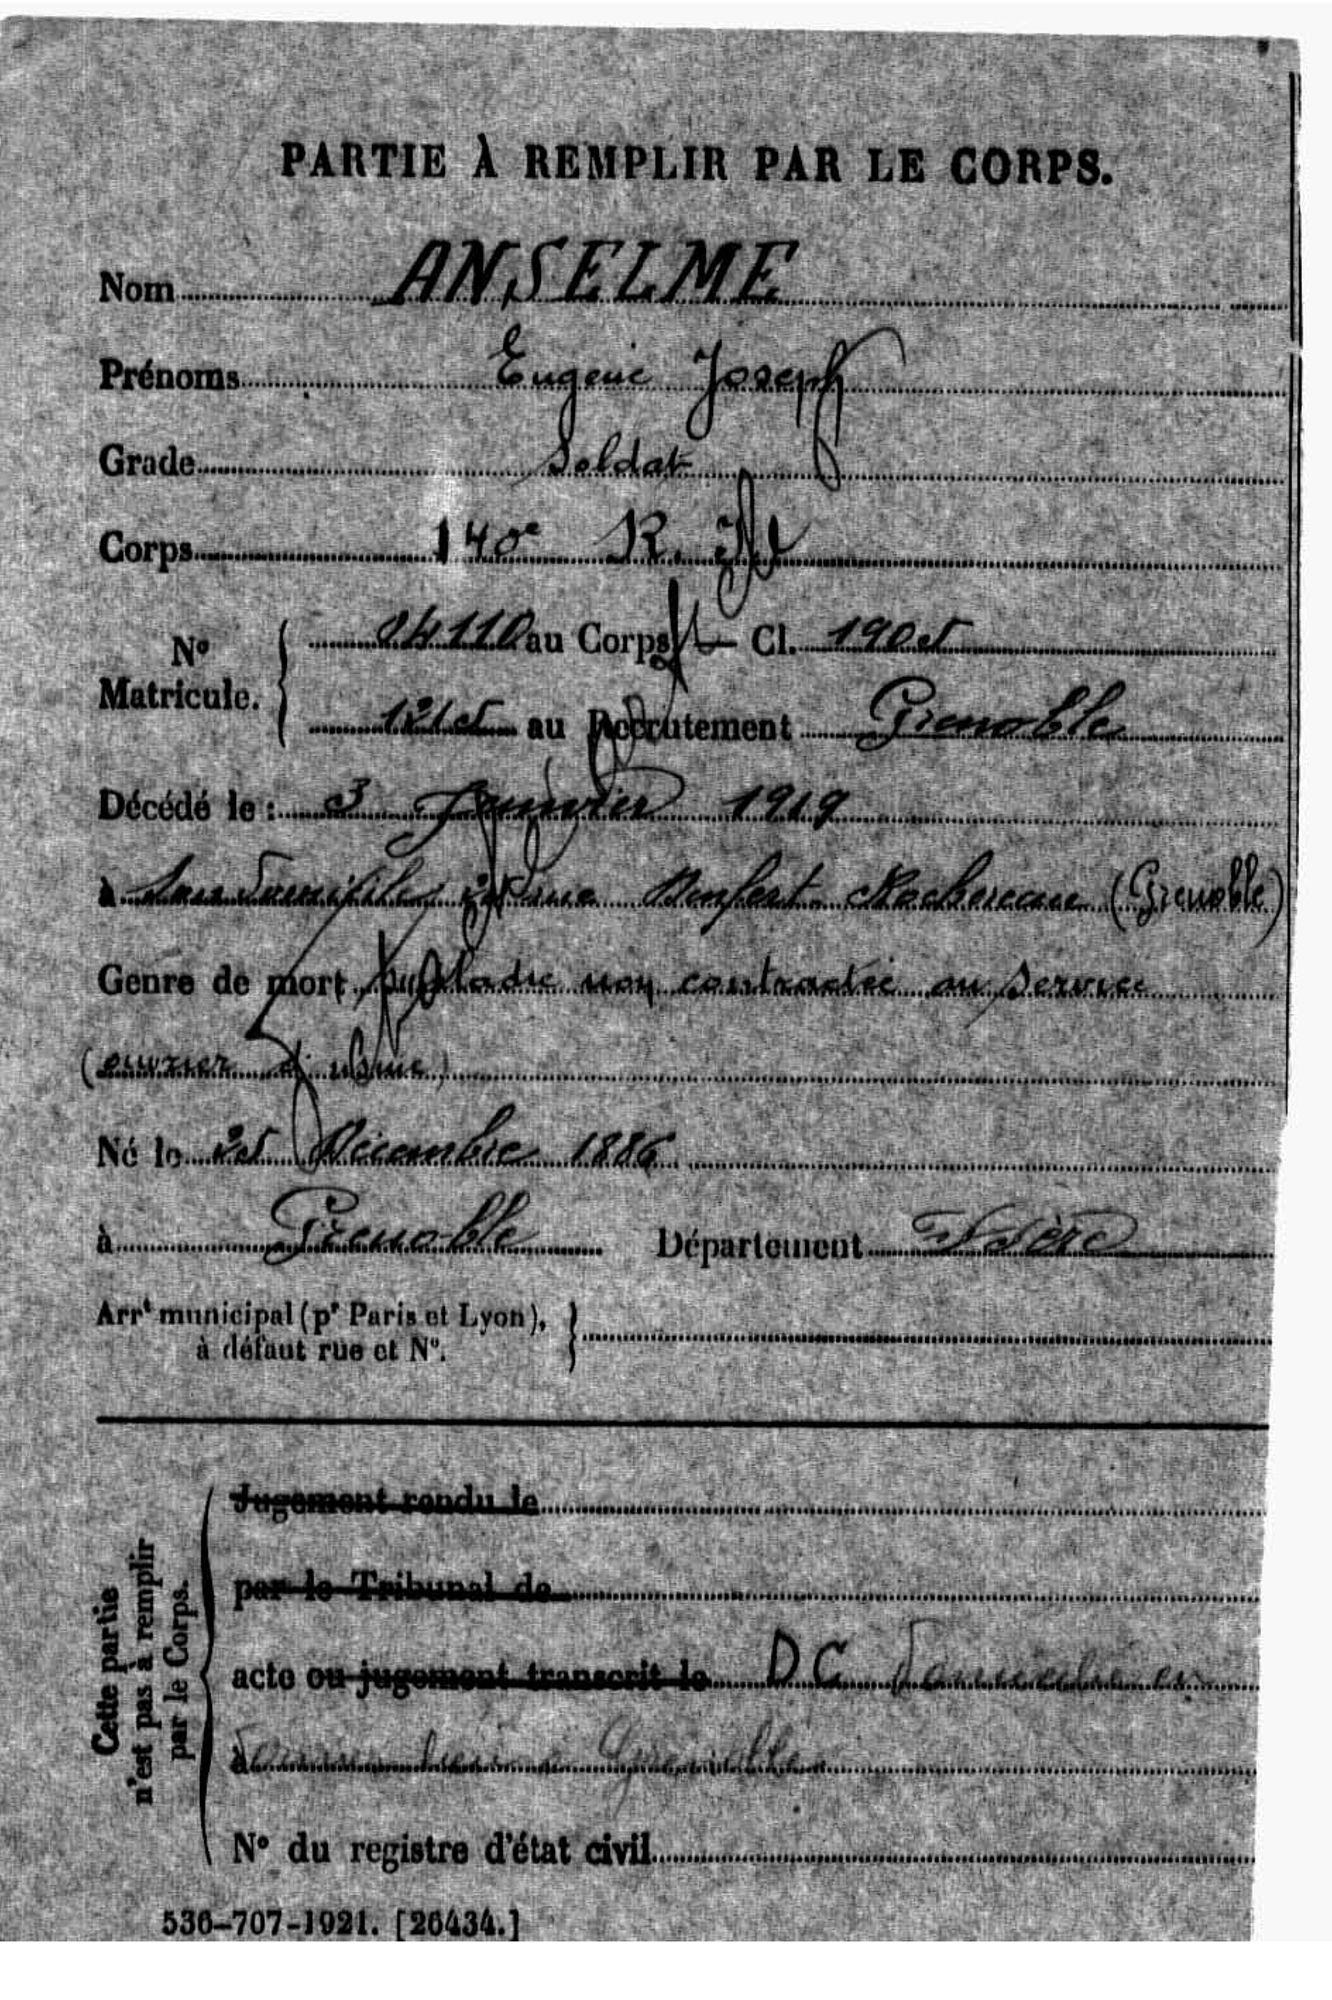 PARTIE À REMPLIR PAR LE CORPS.
Nom ANSELME
Prénoms Eugène Joseph
Grade Soldat
Corps 140e R. I
04110 au Corps Cl. 1905
No Matricule.
1215 au Recrutement Grenoble
Décédé le : 3 Janvier 1919
à Son domicile, rue Denfert Rochereau (Grenoble)
Genre de mort Maladie non contractée au service
(ouvrier d'usine)
Né le 25 Décembre 1886
à Grenoble Département Isère
Arrt municipal (pr Paris et Lyon), à défaut rue et No.
Cette partie n'est pas à remplir par le Corps.
Jugement rendu le
par le Tribunal de
acte ou jugement transcrit le D.C.
à Grenoble
No du registre d'état civil
536-707-1921. [26434.]